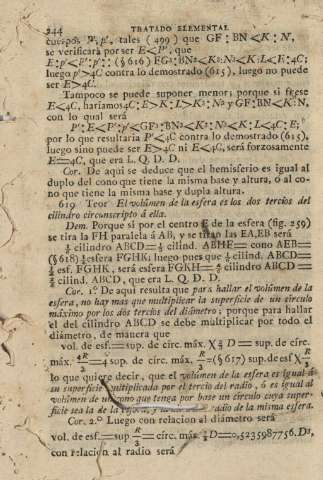 244 TRATADO ELEMENTAL
cuerpos N', p', tales (499) que GF : BN < K : N',
se verificará por ser E < P', que
luego p' > 4C contra lo demostrado (615), luego no puede
ser E > 4C.
Tampoco se puede suponer menor; porque si fuese
E < 4C, haríamos 4C : E > K : L > K³ : N³ y GF : BN < K : N,
con lo qual será
por lo que resultaría P' < 4C contra lo demostrado (615),
luego sino puede ser E > 4C ni E < 4C, será forzosamente
E = 4C, que era L. Q. D. D.
Cor. De aqui se deduce que el hemisferio es igual al
duplo del cono que tiene la misma base y altura, ó al co-
no que tiene la misma base y dupla altura.
619 Teor El volúmen de la esfera es los dos tercios del
cilindro circunscripto á ella.
Dem. Porque si por el centro E de la esfera (fig. 259)
se tira la FH paralela á AB, y se tiran las EA, EB será
cilindro ABCD = cilind. ABHF = cono AEB =
(§ 618) ½ esfera FGHK; luego pues que ⅓ cilind. ABCD =
½ esf. FGHK, será esfera FGKH = ⅔ cilindro ABCD =
cilind. ABCD, que era L. Q. D. D.
Cor. 1.º De aqui resulta que para hallar el volúmen de la
esfera, no hay mas que multiplicar la superficie de un círculo
máximo por los dos tercios del diámetro; porque para hallar
el del cilindro ABCD se debe multiplicar por todo el
diámetro, de manera que
vol. de esf. = sup. de círc. máx. X ⅔ D = sup. de círc.
máx. 4R/3 = 4 sup. de círc. máx. R/3 = (§ 617) sup. de esf X R/3,
lo que quiere decir, que el volúmen de la esfera es igual á
su superficie multiplicada por el tercio del radio, ó es igual al
volúmen de un cono que tenga por base un círculo cuya super-
ficie sea la de la esfera, radio de la misma esfera.
Cor. 2.º Luego con relacion al diámetro será
vol. de esf. = sup R/3 = círc. máx. ⅔ D = 0,5235987756. D³,
con relacion al radio será